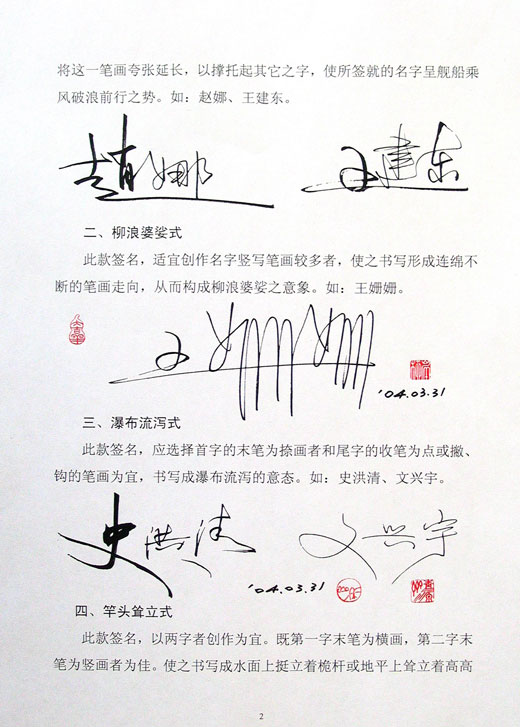 将这一笔画夸张延长，以撑托起其它之字，使所签就的名字呈舰船乘
风破浪前行之势。如：赵娜、王建东。
趙娜
王建东
二、柳浪婆娑式
此款签名，适宜创作名字竖写笔画较多者，使之书写形成连绵不
断的笔画走向，从而构成柳浪婆娑之意象。如：王姗姗。
王姗姗
'04.03.31
三、瀑布流泻式
此款签名，应选择首字的末笔为捺画者和尾字的收笔为点或撇、
钩的笔画为宜，书写成瀑布流泻的意态。如：史洪清、文兴宇。
史洪清
文兴宇
'04.03.31
四、竿头耸立式
此款签名，以两字者创作为宜。既第一字末笔为横画，第二字末
笔为竖画者为佳。使之书写成水面上挺立着桅杆或地平上耸立着高高
2